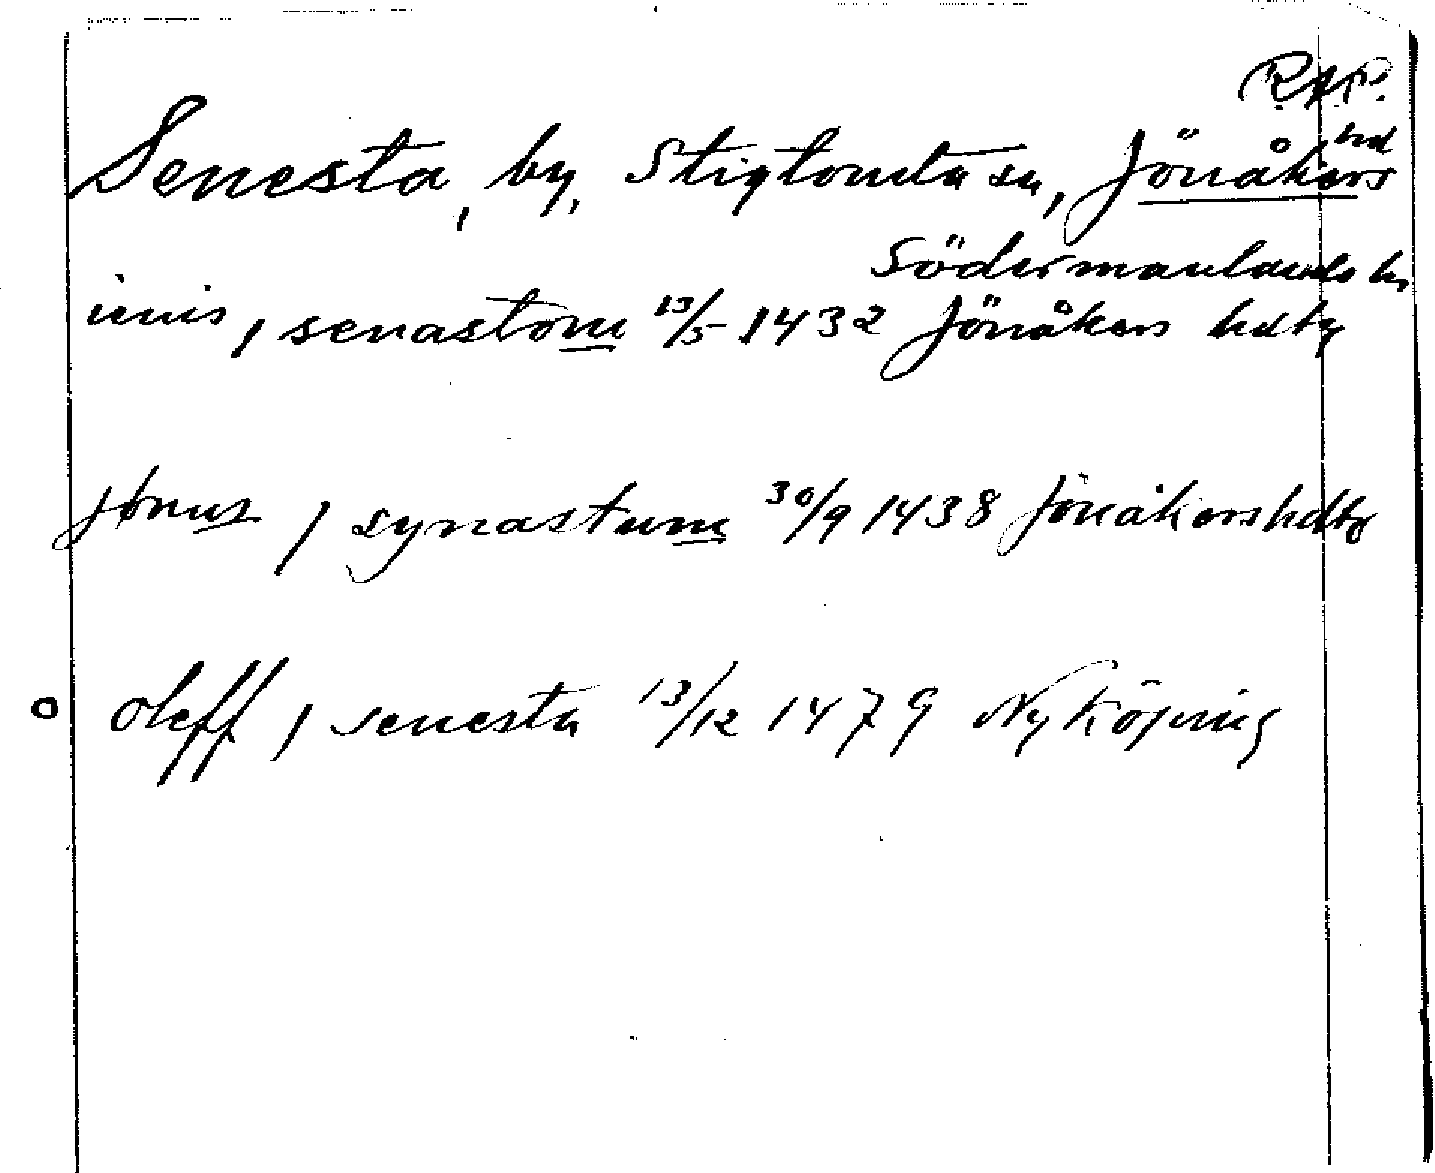 RAP.
Senesta, by, Stigtomta sn, Jönåkers hd
Södermanlands ln
iönis, i senastom 13/5 1432 Jönåkers hdtg
jönus i synastum 30/9 1438 Jönåkershdtg
oleff i senesta 13/12 1479 Nyköping